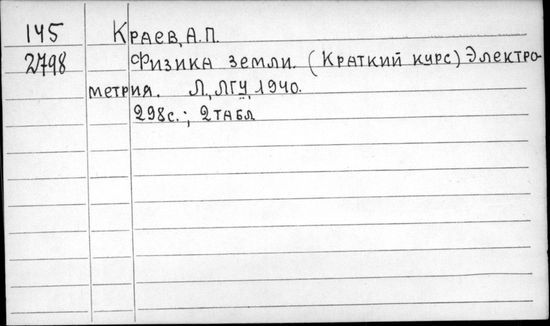 145 Краев, А.П.
2798 Физика земли. (Краткий курс) Электро-
метрия. Л., ЛГУ, 1940.
298с.; 2 табл